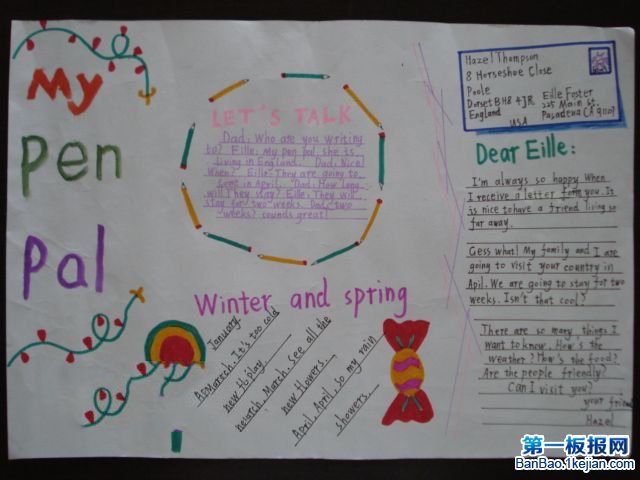 My
pen
pal
LET'S TALK
Dad: Who are you writing
to? Eille: My pen pal, she is
living in England. Dad: Nice!
When? Eille: They are going to
come in April. Dad: How long
will They stay? Eille: They will
stay for two weeks. Dad: two
weeks? counds great!
Winter and spring
January
March. It's too cold
new to play
March. March. See all the
new flowers.
April, April, so my rain
showers.
Hazel Thompson
8 Horseshoe Close
Poole
Dorset BH8 4JR
England
Eille Foster
225 Main St.
Pasadena CA 91107
USA
Dear Eille:
I'm always so happy When
I receive a letter form you. It
is nice to have a friend living so
far away.
Gess what! My family and I are
going to visit your country in
Apil. We are going to stay for two
weeks. Isn't that cool?
There are so many things I
want to know. How's the
weather? How's the food?
Are the people friendly?
Can I visit you?
your friend
Hazel
第一板报网
BanBao.1kejian.com